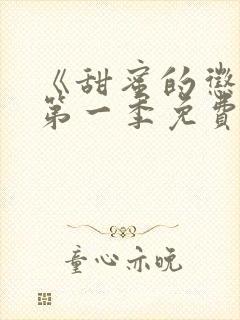 《甜蜜的惩
第一季免费
童心亦晚